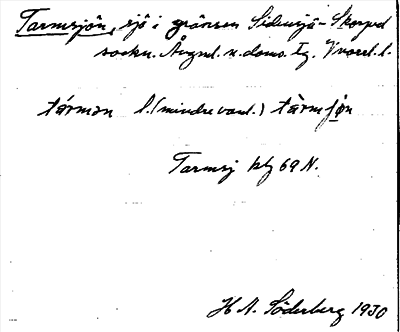 Tarmsjön, sjö i gränsen Sidensjö-Skorped
sockn. Ångml. n. doms. tg. Vnorrl. l.
tármən l. (mindre vanl.) tàrmʃøn
Tarmsj kbl 69 N.
H A. Söderberg 1930